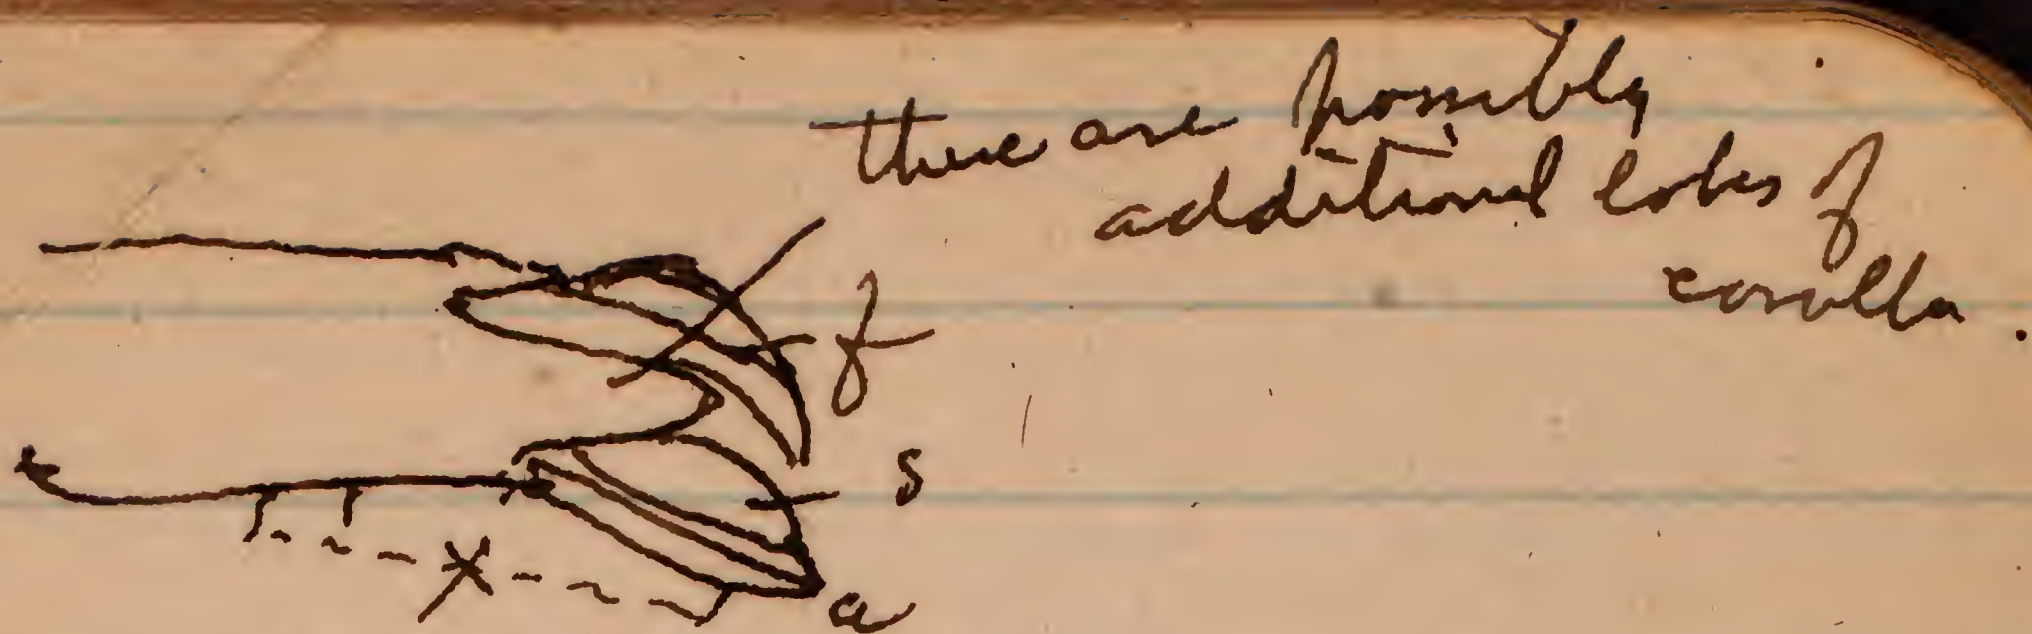 there are possibly
additional lobes of
corolla.
f
s
a